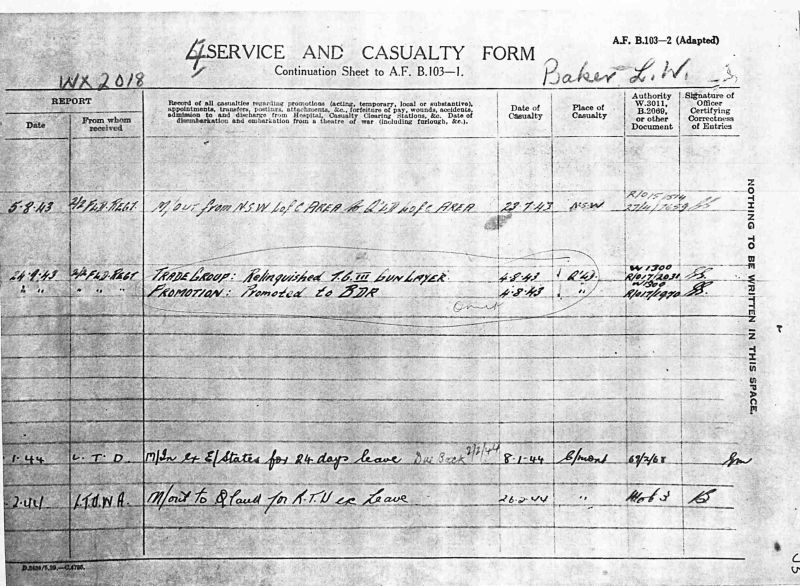 4 SERVICE AND CASUALTY FORM
A.F. B.103—2 (Adapted)
Continuation Sheet to A.F. B.103—1.
WX2018
Baker L.W.
REPORT
Date
From whom received
Record of all casualties regarding promotions (acting, temporary, local or substantive),
appointments, transfers, postings, attachments, &c., forfeiture of pay, wounds, accidents,
admission to and discharge from Hospital, Casualty Clearing Stations, &c. Date of
disembarkation and embarkation from a theatre of war (including furlough, &c.).
Date of Casualty
Place of Casualty
Authority W.3011, B.2069, or other Document
Signature of Officer Certifying Correctness of Entries
5-8-43 2/2 FLD. REGT M/out from NSW LofC AREA to Q'LD LofC AREA 23-7-43 NSW
24-9-43 2/2 FLD. REGT TRADE GROUP: Relinquished T.G. III GUN LAYER 4-8-43 Q'LD W1300 R/017/2031
" " " PROMOTION: Promoted to BDR 4-8-43 " W1300 R/017/1970
1-44 L.T.D. M/In ex E/States for 24 days leave Due Back 2/2/44 8-1-44 C/mont 69/2/68
2-44 L.T.D.W.A. M/out to Q land for R.T.U ex Leave 26-2-44 "
NOTHING TO BE WRITTEN IN THIS SPACE.